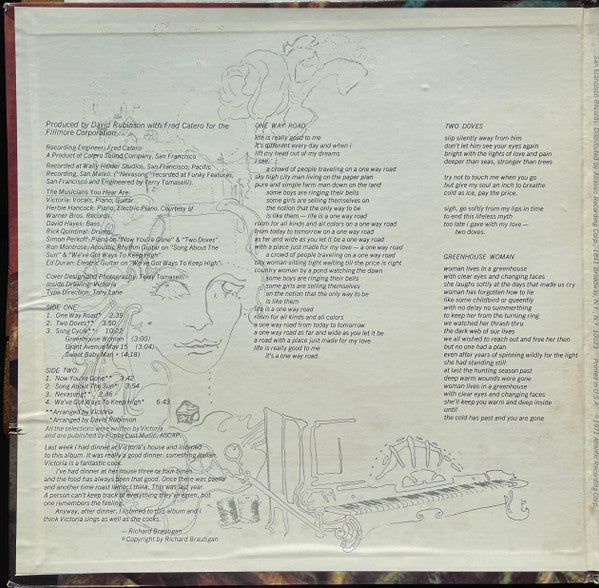 Produced by David Rubinson with Fred Catero for the
Fillmore Corporation.
Recording Engineer: Fred Catero
A Product of Catero Sound Company, San Francisco
Recorded at Wally Heider Studios, San Francisco; Pacific
Recording, San Mateo. ("Nevasong" recorded at Funky Features,
San Francisco and Engineered by Terry Tomaselli).
The Musicians You Hear Are:
Victoria: Vocals, Piano, Guitar.
Herbie Hancock: Piano, Electric Piano. Courtesy of
Warner Bros. Records.
David Hayes: Bass.
Rick Quintinal: Drums.
Simon Perkoff: Piano on "Now You're Gone" & "Two Doves"
Ron Montrose: Acoustic Rhythm Guitar on "Song About The
Sun" & "We've Got Ways To Keep High".
Ed Duran: Electric Guitar on "We've Got Ways To Keep High".
Cover Design and Photography: Terry Tomaselli
Inside Drawing: Victoria
Type Direction: Tony Lane
SIDE ONE:
1. One Way Road* 2:39
2. Two Doves** 3:50
3. Song Cycle**
Greenhouse Woman (3:00)
Grant Avenue May 15 (3:04)
Sweet Baby Man • (4:18)
SIDE TWO:
1. Now You're Gone** 3:42
2. Song About The Sun* 3:54
3. Nevasong** 2:46
4. We've Got Ways To Keep High* 6:43
**Arranged by Victoria
*Arranged by David Rubinson
All the selections were written by Victoria
and are published by Puppy Cast Music, ASCAP.
Last week I had dinner at Victoria's house and listened
to this album. It was really good dinner: something Italian.
Victoria is a fantastic cook.
I've had dinner at her house three or four times
and the food has always been that good. Once there was paella
and another time roast lamb, I think. This was last year.
A person can't keep track of everything they've eaten, but
one remembers the feeling.
Anyway, after dinner, I listened to this album and I
think Victoria sings as well as she cooks.
—Richard Brautigan
©Copyright by Richard Brautigan
ONE WAY ROAD
life is really good to me
it's different every day and when i
lift my head out of my dreams
I see
a crowd of people traveling on a one way road
sky high city man living on the paper plan
pure and simple farm man down on the land
some boys are ringing their bells
some girls are selling themselves on
the notion that the only way to be
is like them — life is a one way road
room for all kinds and all colors on a one way road
from today to tomorrow on a one way road
as far and wide as you let it be a one way road
with a place just made for my love — a one way road
a crowd of people traveling on a one way road
city woman sitting tight waiting till the price is right
country woman by a pond watching the dawn
some boys are ringing their bells
some girls are selling themselves
on the notion that the only way to be
is like them
life is a one way road
room for all kinds and all colors
a one way road from today to tomorrow
a one way road as far and wide as you let it be
a road with a place just made for my love
life is really good to me
It's a one way road.
TWO DOVES
slip silently away from him
don't let him see your eyes again
bright with the lights of love and pain
deeper than seas, stronger than trees
try not to touch me when you go
but give my soul an inch to breathe
cold as ice, pay the price.
sigh, go softly from my lips in time
to end this lifeless myth
too late i gave with my love —
two doves.
GREENHOUSE WOMAN
woman lives in a greenhouse
with clear eyes and changing faces
she laughs softly at the days that made us cry
woman has forgotten how to lie
like some childbird or queenfly
with no delay no summerthing
to keep her from the turning ring
we watched her thrash thru
the dark web of our lives
we all wished to reach out and free her then
but no one had a plan
even after years of spinning wildly for the light
she had standing still
at last the hunting season past
deep warm wounds were gone
woman lives in a greenhouse
with clear eyes and changing faces
she'll keep you warm and deep inside
until
the cold has past and you are gone